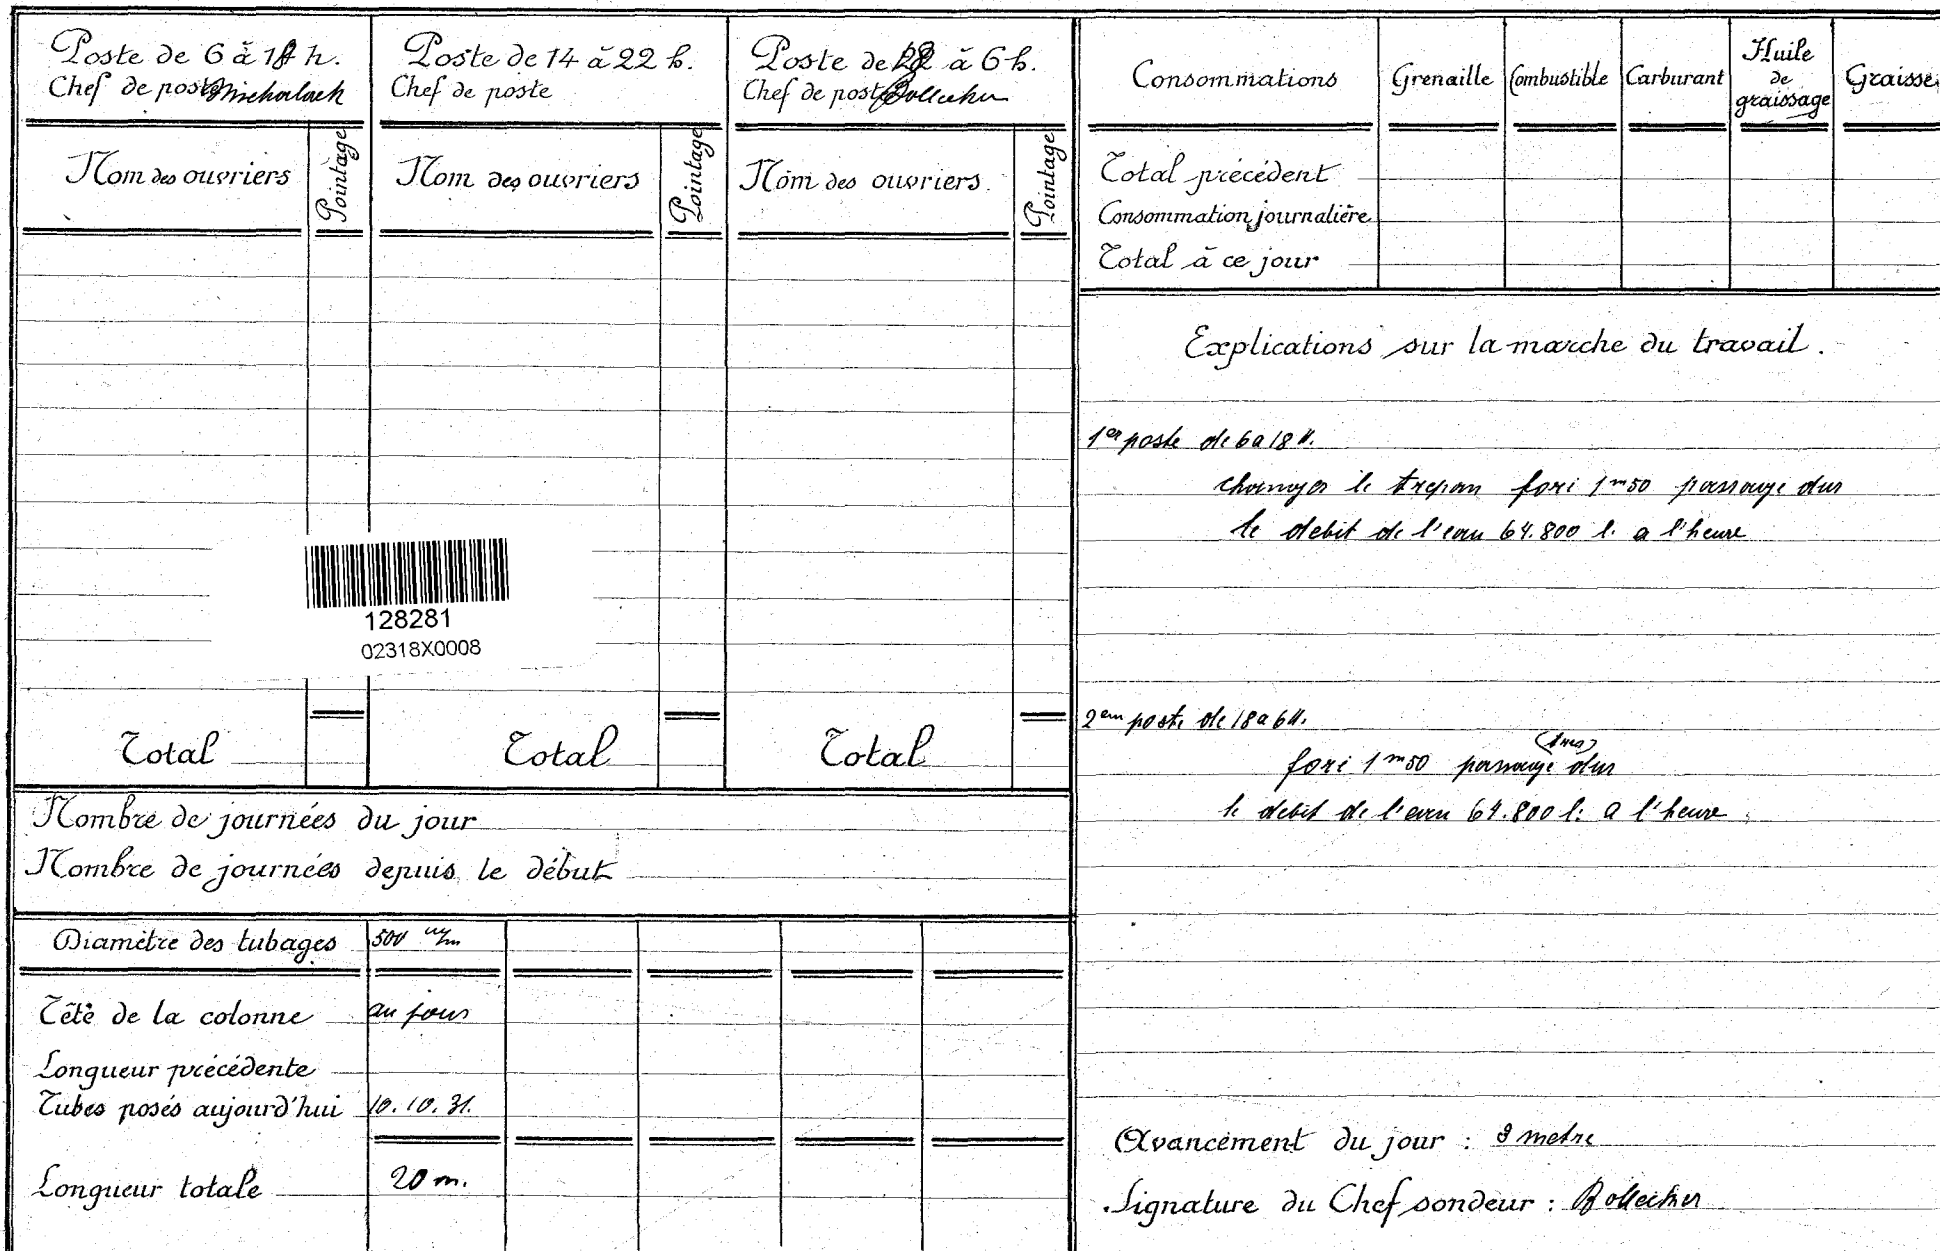 Poste de 6 à 18 h.
Chef de poste
Nom des ouvriers
Pointage
Total
Poste de 14 à 22 h.
Chef de poste
Nom des ouvriers
Pointage
Total
Poste de 18 à 6 h.
Chef de poste Bollecker
Nom des ouvriers
Pointage
Total
128281
02318X0008
Nombre de journées du jour
Nombre de journées depuis le début
Diamètre des tubages 500 m/m
Tête de la colonne au jour
Longueur précédente
Tubes posés aujourd'hui 10.10.31.
Longueur totale 20 m.
Consommations Grenaille Combustible Carburant Huile de graissage Graisse
Total précédent
Consommation journalière
Total à ce jour
Explications sur la marche du travail.
1er poste de 6 a 18 H.
changer le trepan fori 1m50 passage dur
le debit de l'eau 64.800 l. a l'heure
2em poste de 18 a 6 H.
fori 1m50 passage (tres) dur
le debit de l'eau 64.800 l. a l'heure
Avancement du jour : 3 metre
Signature du Chef sondeur : Bollecker